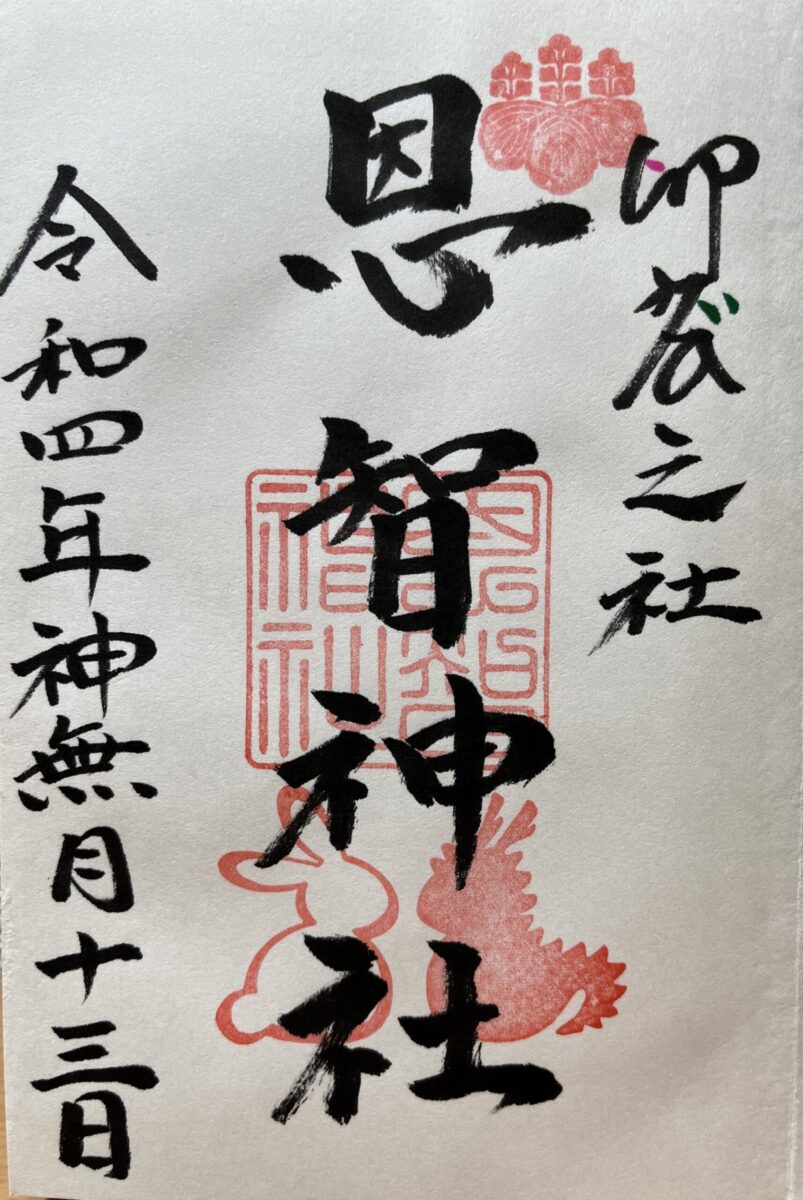 卯辰之社
恩智神社
令和四年神無月十三日
恩智
神社